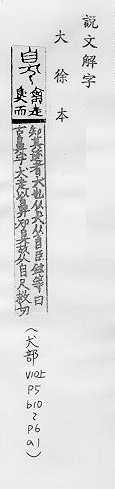 說文解字
大徐本
臭
禽走
臭而
知其迹者犬也从犬从自臣鉉等曰
古鼻字犬走以鼻知臭故从自尺救切
(犬部
V10上
P5
b10
~
P6
a1)